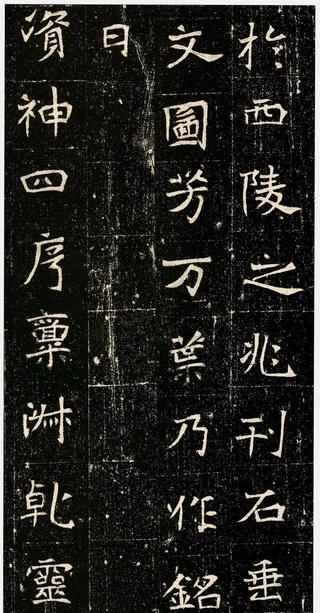 扵西陵之兆刊石垂
文圖芳万葉乃作銘
曰
資神四序稟淑乹靈